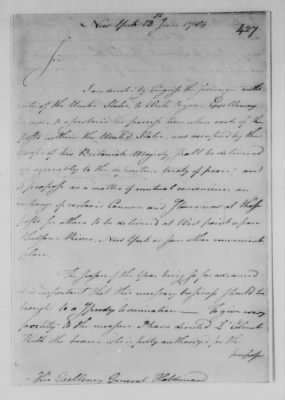 New York 13th June 1784
427
Sir
I am directed by Congress the sovereign autho-
rity of the United States, to write to your Excellency
in order to ascertain the precise time when each of the
posts within the United States, now occupied by the
troops of his Britanick Majesty shall be delivered
up agreeably to the definitive treaty of peace; and
to propose as a matter of mutual convenience an
exchange of certain Cannon and Stores now at these
posts for others to be delivered at West point upon
Hudsons River, New York or some other convenient
place.
The season of the Year being so far advanced
it is important that this necessary business should be
brought to a speedy termination — To give every
facility to the measure I have directed Lt Colonel
Hull the bearer who is fully authorized for the
purpose
His Excellency General Haldimand